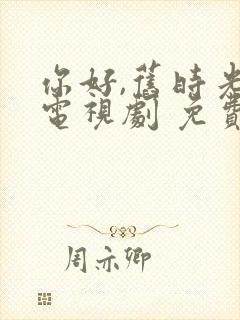 你好,舊時光
電視劇 免費
周亦卿